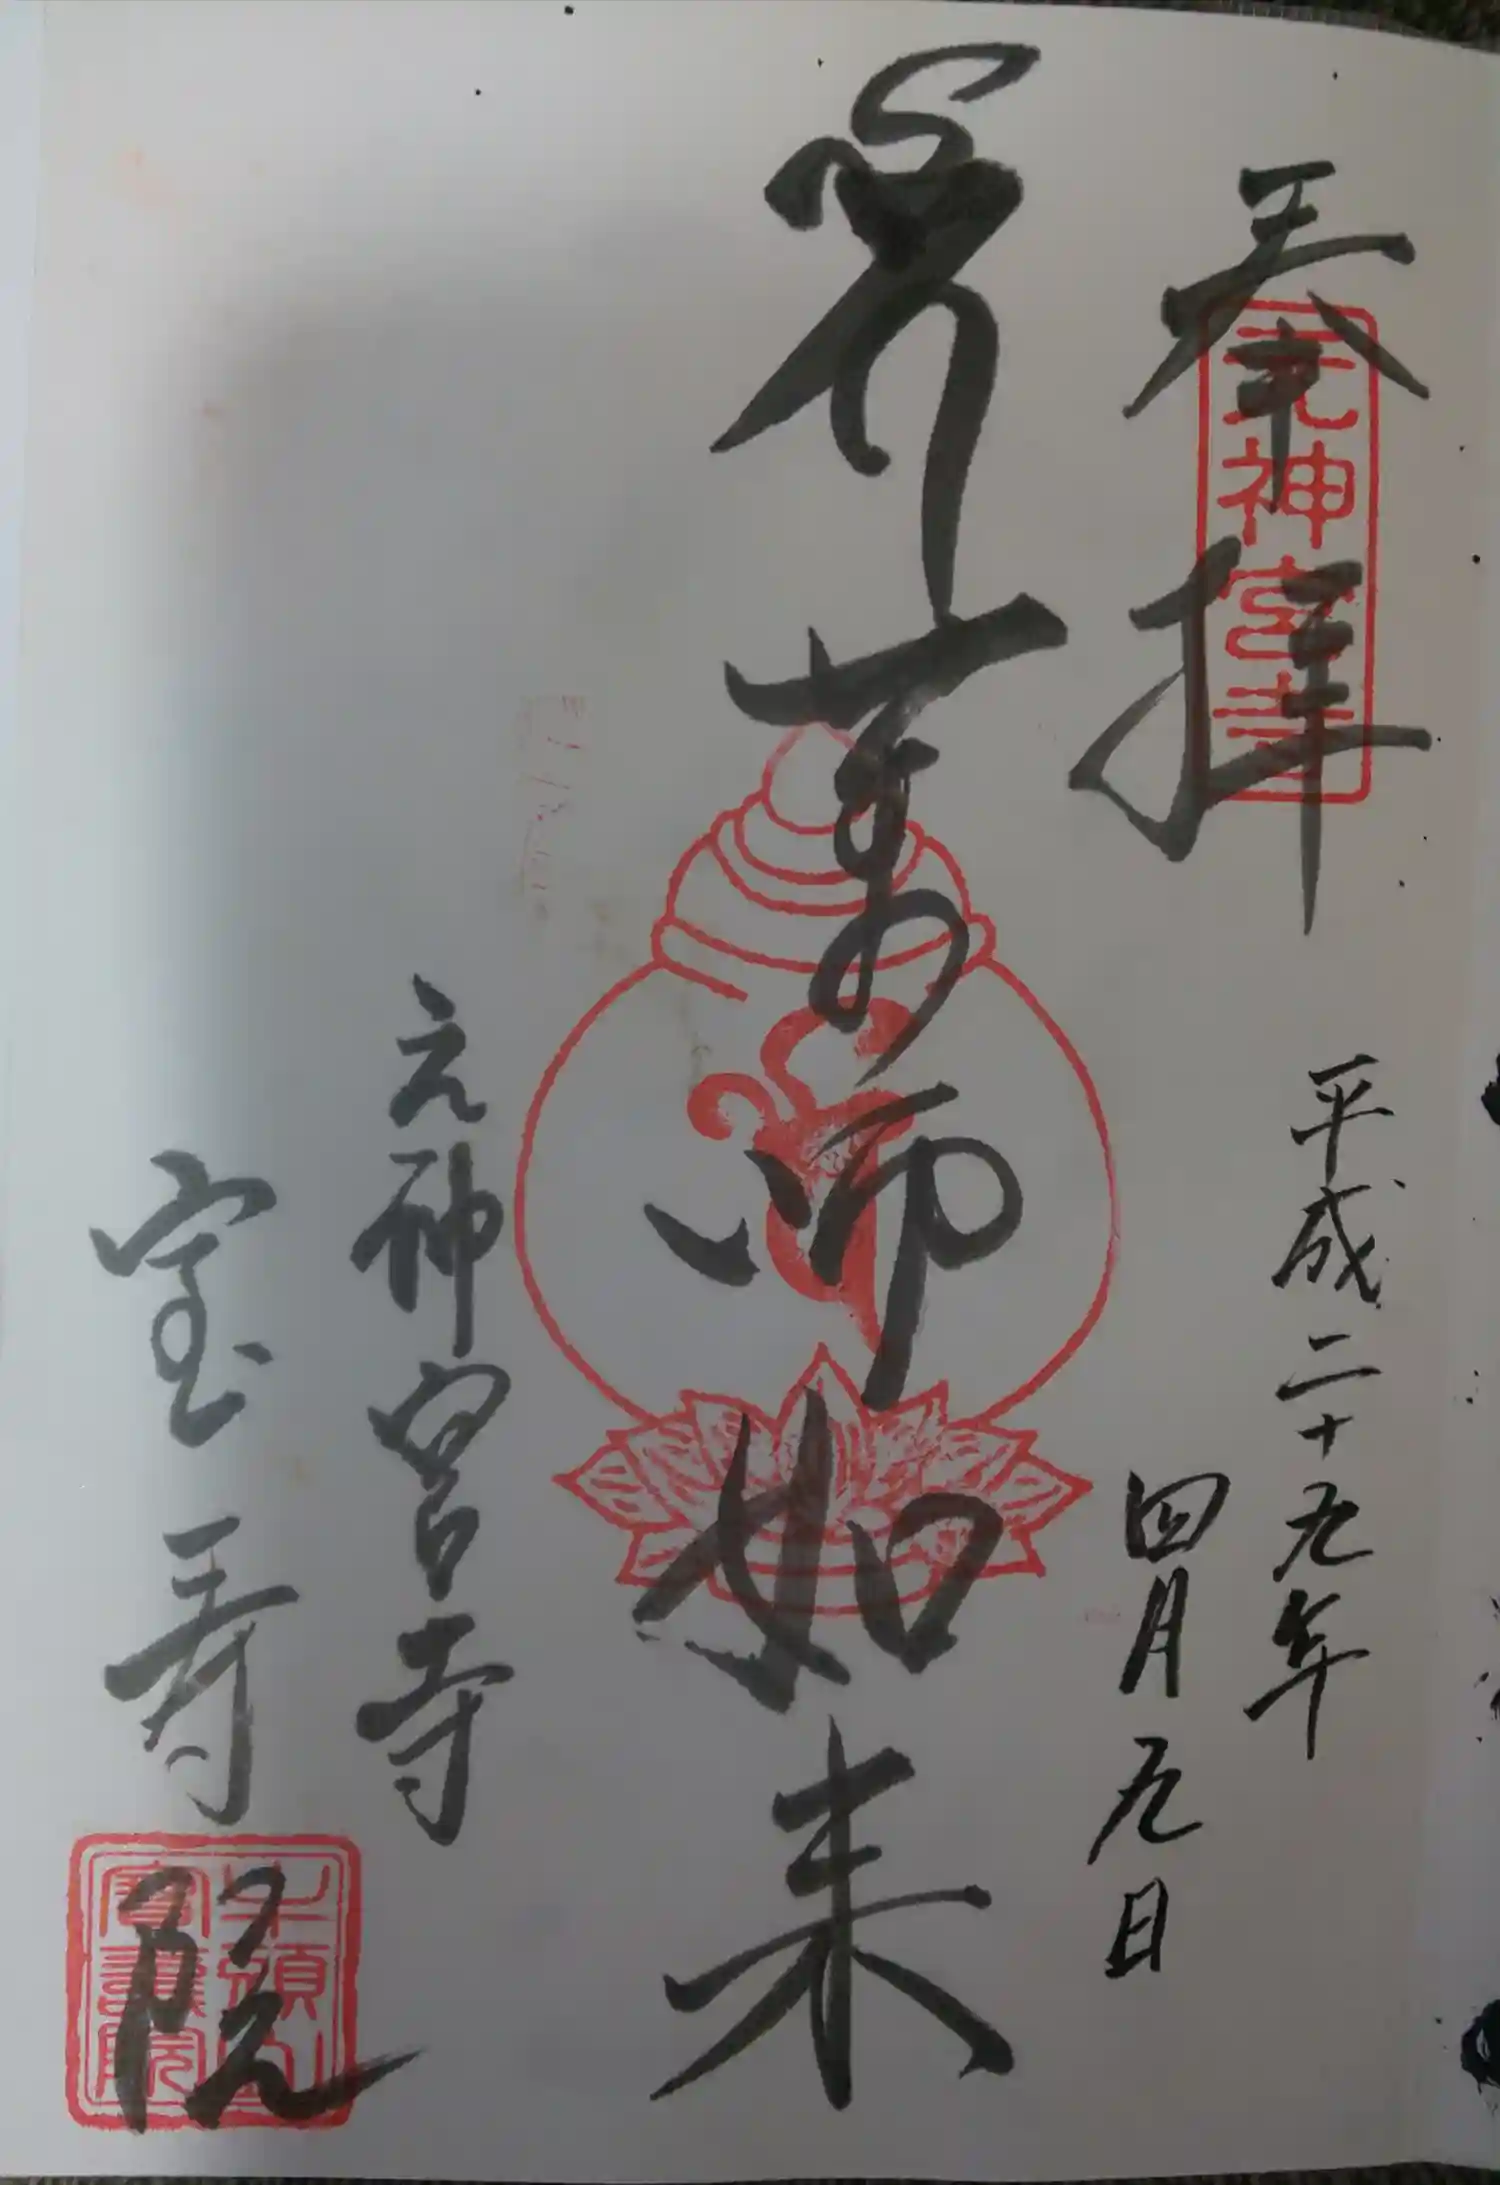 奉拝
元神宮寺
平成二十九年
四月九日
薬師如来
元神宮寺
宝寿院
牛頭山
寳壽院